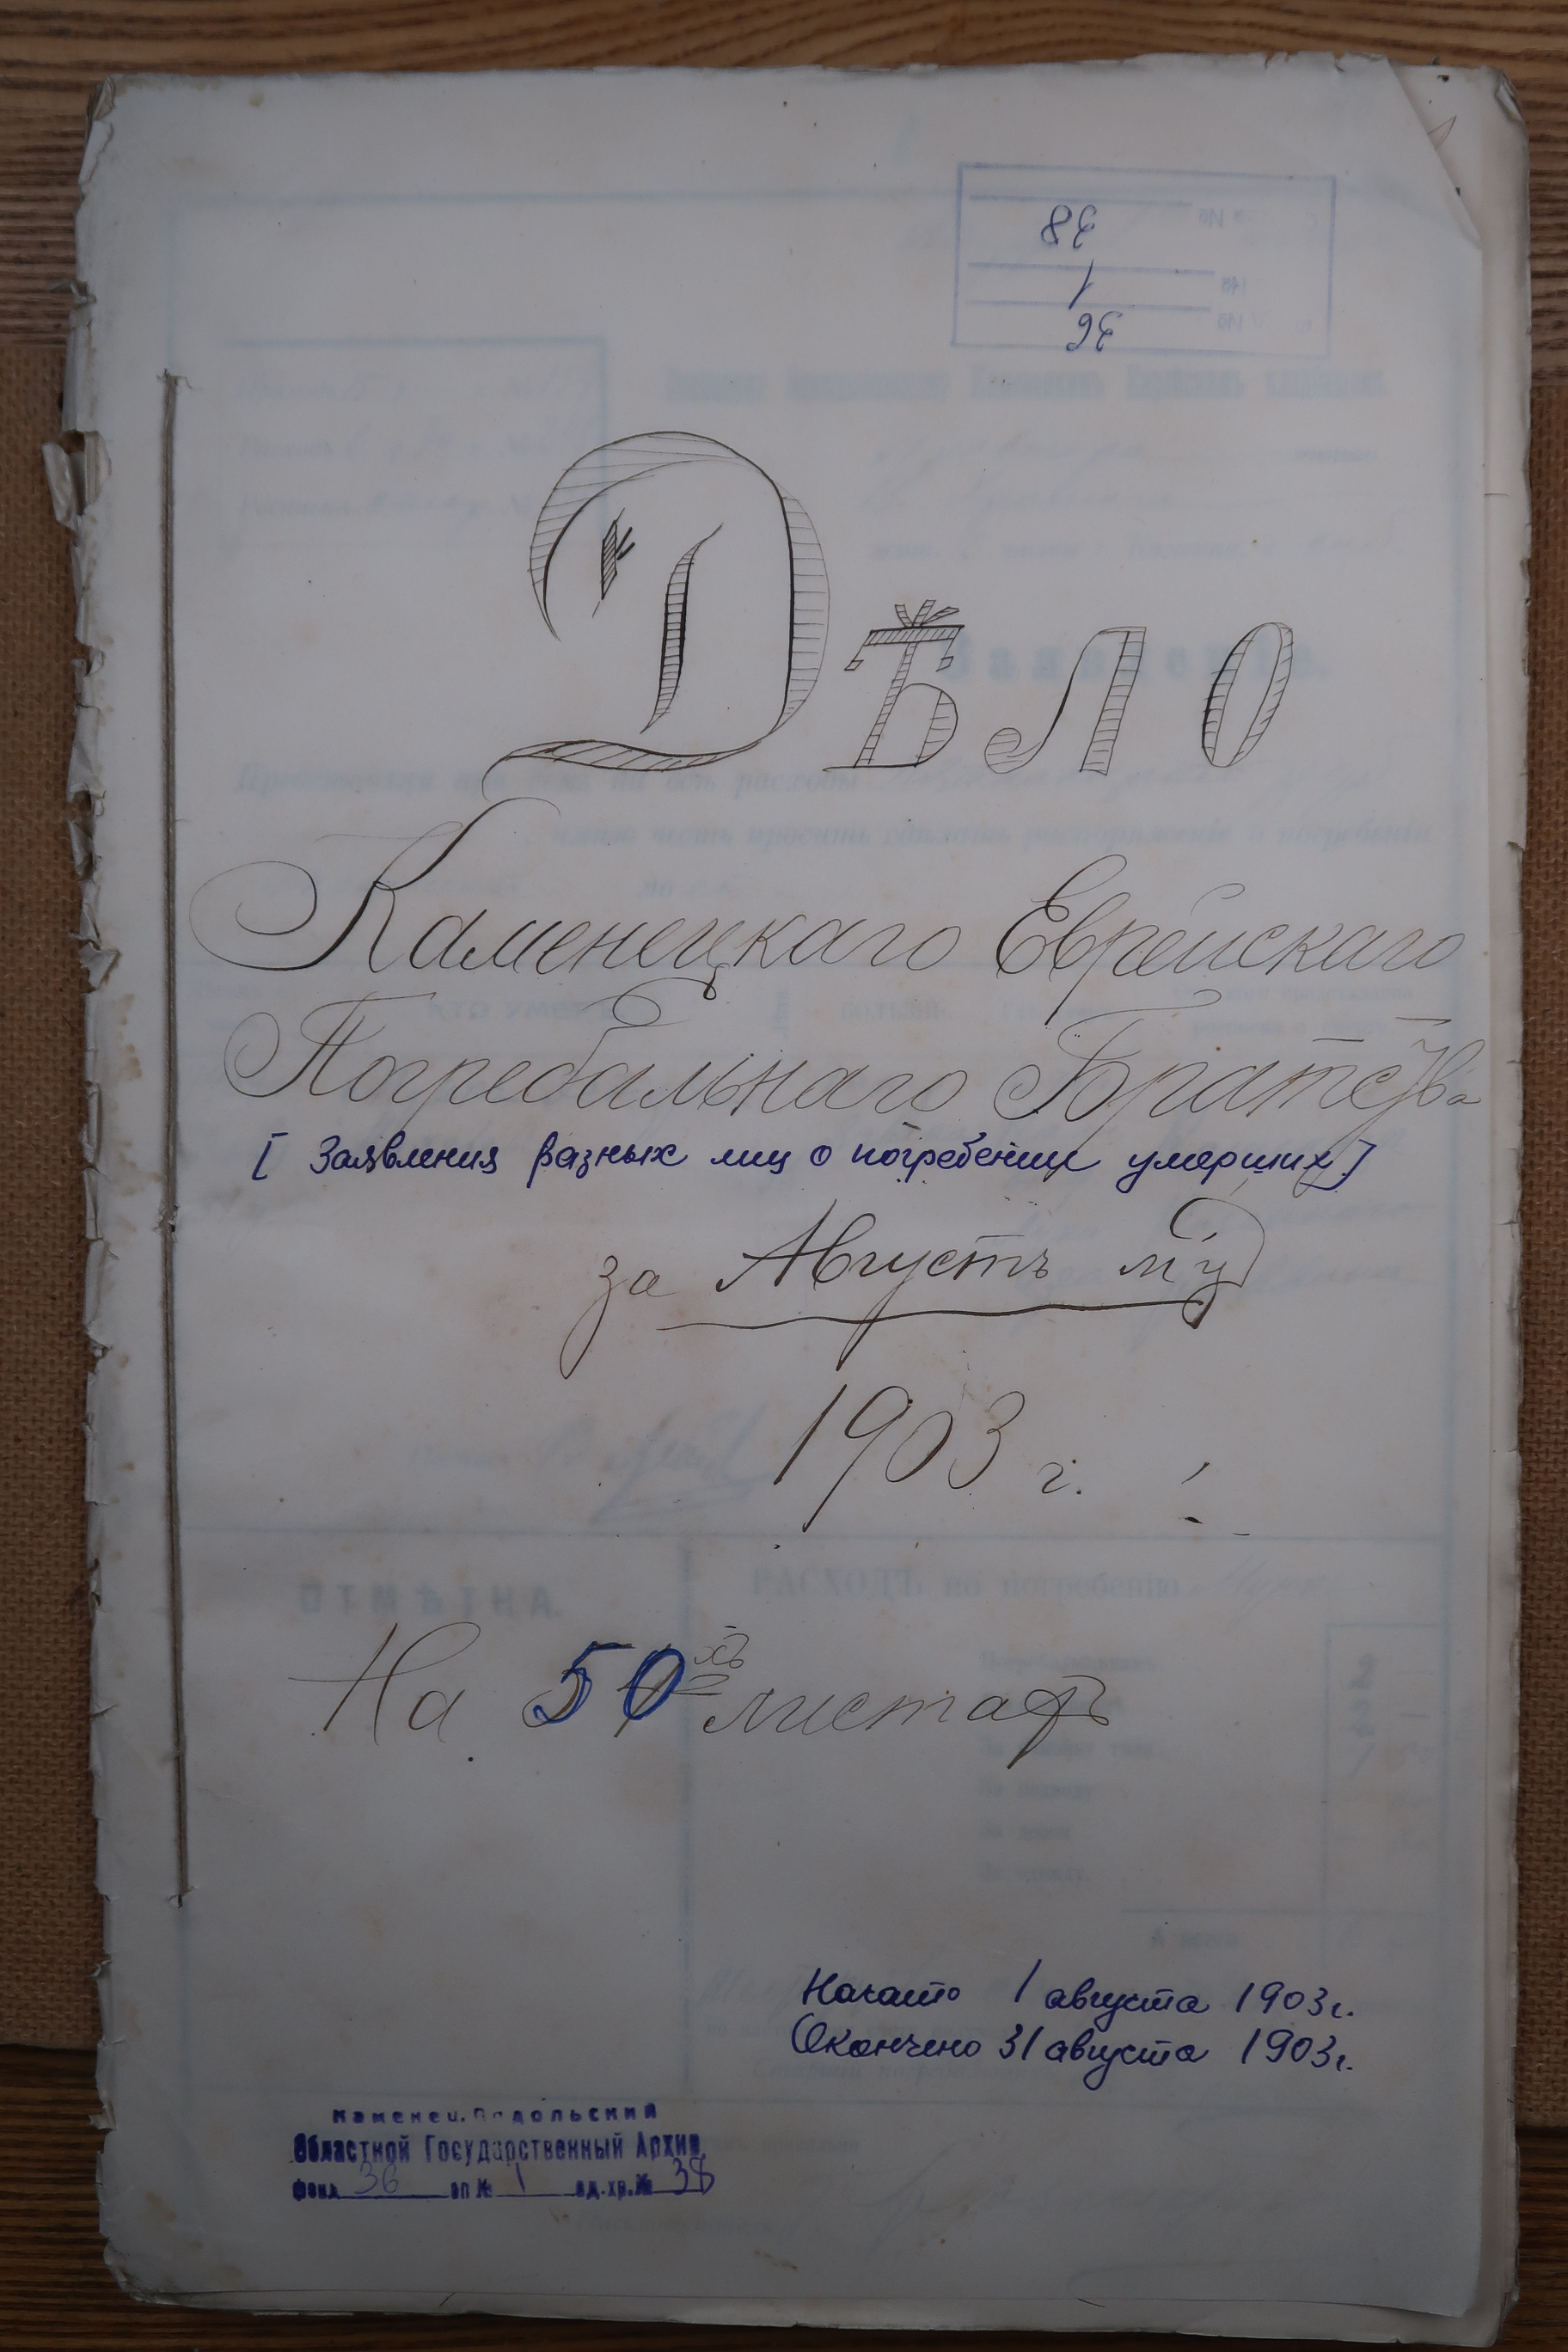 38
1
36
Дѣло
Каменецкаго Еврейскаго
Погребальнаго Братства
[ Заявления разных лиц о погребении умерших]
за Августъ м-ц
1903 г.
На 50хъ листахъ
Начато 1 августа 1903г.
Окончено 31 августа 1903г.
Каменец-Подольский
Областной Государственный Архив
Фонд 36 оп № 1 ед.хр.№ 38